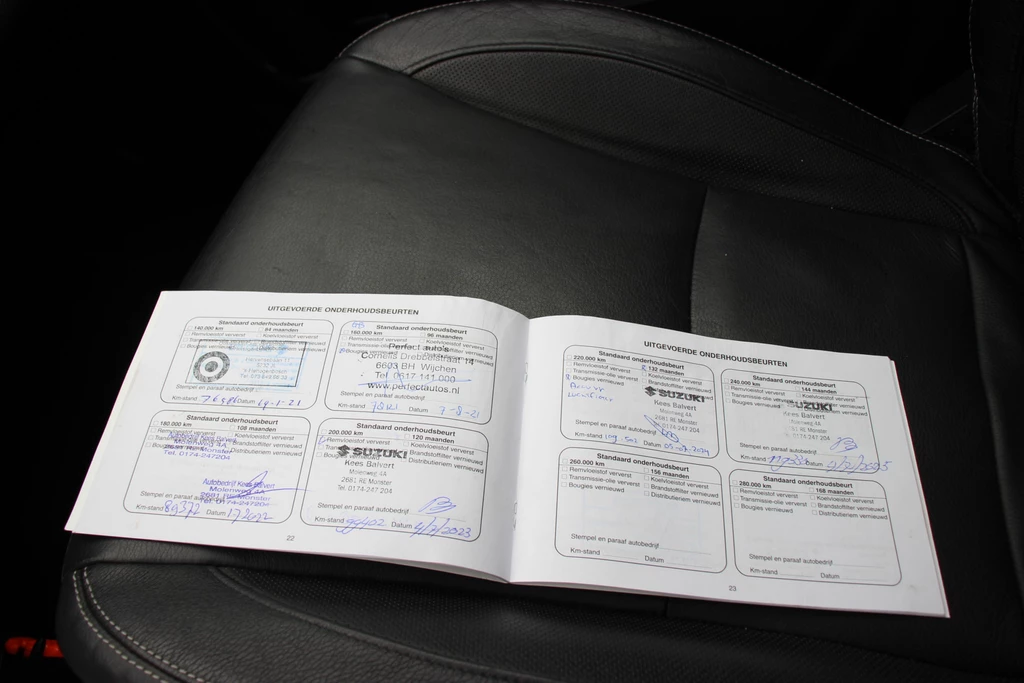 UITGEVOERDE ONDERHOUDSBEURTEN
Standaard onderhoudsbeurt
140.000 km 84 maanden
Remvloeistof ververst Koelvloeistof ververst
Stempel en paraaf autobedrijf
Km-stand Datum
Standaard onderhoudsbeurt
160.000 km 96 maanden
Remvloeistof ververst Koelvloeistof ververst
Perfect auto's
Cornelis Drebbelstraat 14
6603 BH Wijchen
Tel. 0617 141 000
www.perfectautos.nl
Km-stand Datum 7-8-21
Standaard onderhoudsbeurt
180.000 km 108 maanden
Koelvloeistof ververst
Brandstoffilter vernieuwd
Distributieriem vernieuwd
Molenweg 4A
2681 RE Monster
Tel. 0174-247204
Autobedrijf Kees Balvert
Molenweg 4A
2681 RE Monster
Tel. 0174-247204
Stempel en paraaf autobedrijf
Km-stand 89372 Datum
Standaard onderhoudsbeurt
200.000 km 120 maanden
Remvloeistof ververst Koelvloeistof ververst
Brandstoffilter vernieuwd
Bougies vernieuwd Distributieriem vernieuwd
SUZUKI
Kees Balvert
Molenweg 4A
2681 RE Monster
Tel. 0174-247 204
Stempel en paraaf autobedrijf
Km-stand 99402 Datum 4/2/2023
22
UITGEVOERDE ONDERHOUDSBEURTEN
Standaard onderhoudsbeurt
220.000 km 132 maanden
Remvloeistof ververst Koelvloeistof ververst
Transmissie-olie ververst Brandstoffilter vernieuwd
Bougies vernieuwd
SUZUKI
Kees Balvert
Molenweg 4A
2681 RE Monster
Tel. 0174-247 204
Stempel en paraaf autobedrijf
Km-stand Datum
Standaard onderhoudsbeurt
240.000 km 144 maanden
Remvloeistof ververst Koelvloeistof ververst
Transmissie-olie ververst Brandstoffilter vernieuwd
Bougies vernieuwd
SUZUKI
Kees Balvert
Molenweg 4A
2681 RE Monster
Tel. 0174-247 204
Stempel en paraaf autobedrijf
Km-stand Datum 4/2/2025
Standaard onderhoudsbeurt
260.000 km 156 maanden
Remvloeistof ververst Koelvloeistof ververst
Transmissie-olie ververst Brandstoffilter vernieuwd
Bougies vernieuwd Distributieriem vernieuwd
Stempel en paraaf autobedrijf
Km-stand Datum
Standaard onderhoudsbeurt
280.000 km 168 maanden
Remvloeistof ververst Koelvloeistof ververst
Transmissie-olie ververst Brandstoffilter vernieuwd
Bougies vernieuwd Distributieriem vernieuwd
Stempel en paraaf autobedrijf
Km-stand Datum
23